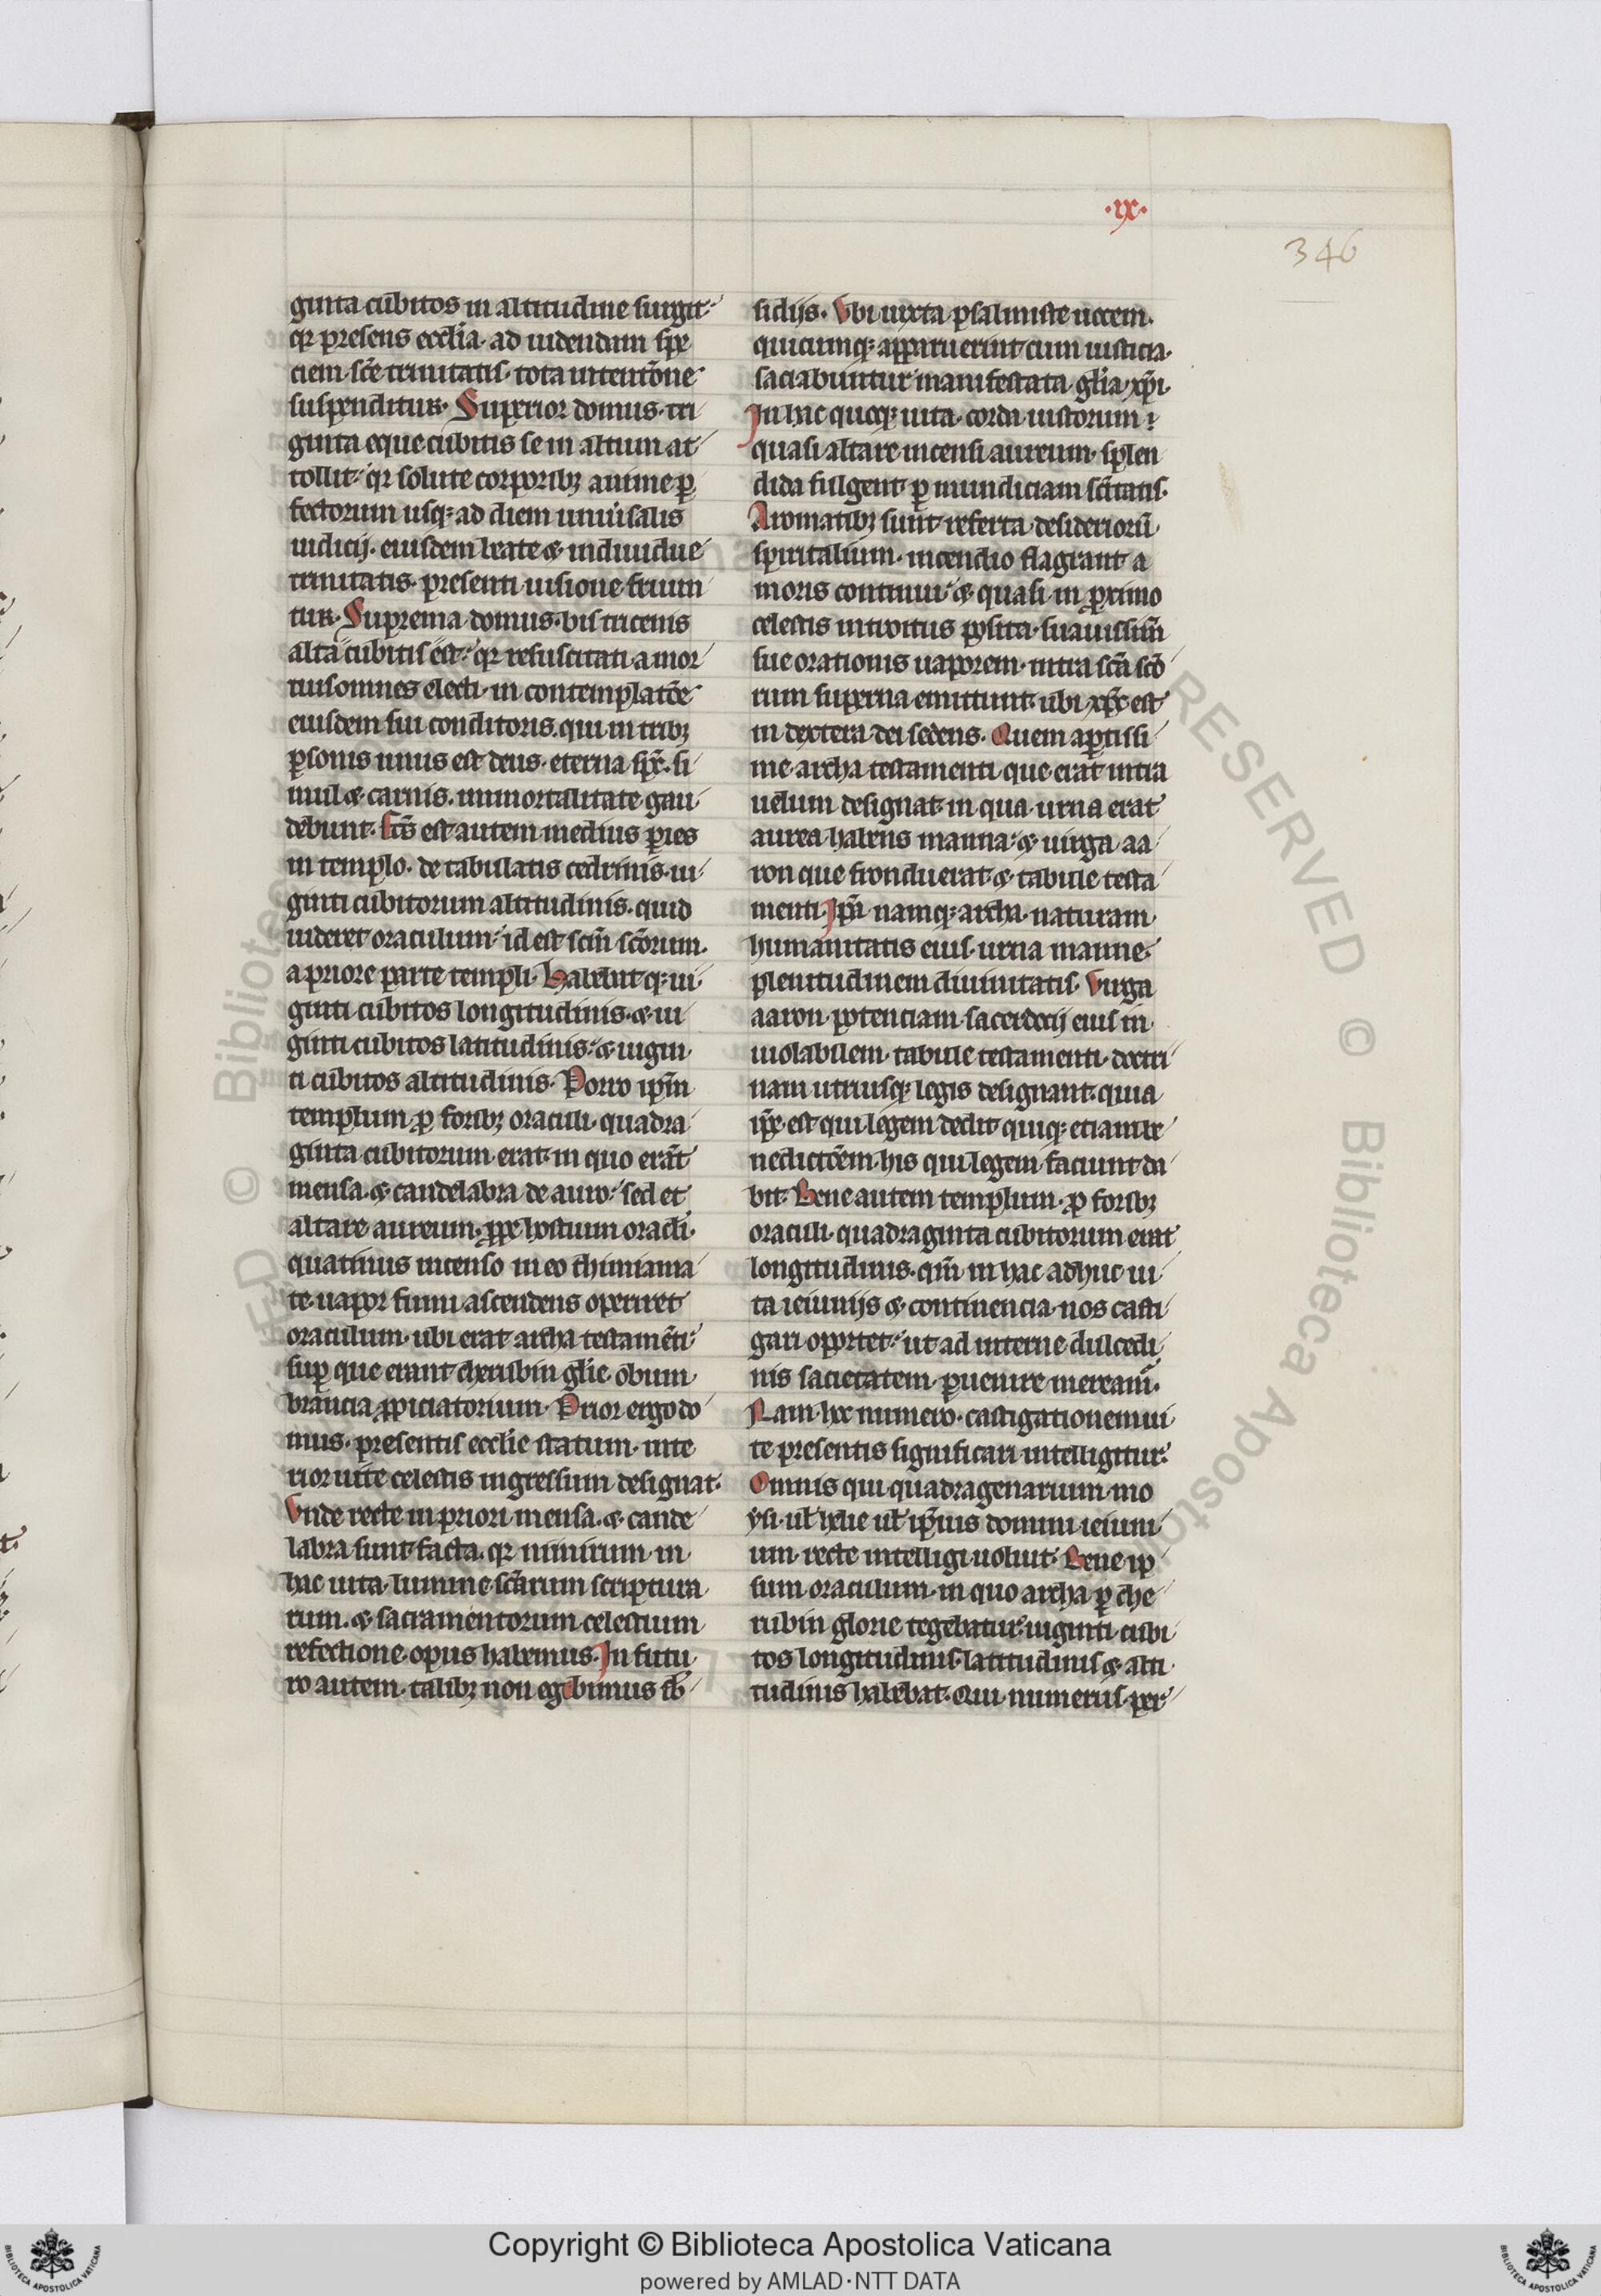 ·ix·
346
ginta cubitos in altitudine surgit·
qr presens ecclia· ad uidendam spe
ciem sce trinitatis· tota intentone
suspenditur· Superior domus· tri
ginta eque cubitis se in altum at
tollit· qr solute corporibꝫ anime ꝑ
fectorum usqꝫ ad diem uniũsalis
iudicij· eiusdem beate ⁊ indiuidue
trinitatis· presenti uisione fruun
tur· Suprema domus· bis tricenis
alta cubitis est· qr resuscitati a mor
tuis omnes electi· in contemplatõe
eiusdem sui conditoris· qui in tribꝫ
ꝑsonis unus est deus· eterna spc̃· si
mul ⁊ carnis· immortalitate gau
debunt· fcũ est autem medius ꝑies
in templo· de tabulatis cedrinis· ui
ginti cubitorum altitudinis· quid
uideret oraculum· id est scm̃ scõrum·
a priore parte templi· Habebit qꝫ· ui
ginti cubitos longitudinis· ⁊ ui
ginti cubitos latitudinis· ⁊ uigin
ti cubitos altitudinis· Porro ipm̃
templum ꝓ foribꝫ oraculi· quadra
ginta cubitorum erat· in quo erãt
mensa· ⁊ candelabra de auro· sed et
altare aureum· ꝓpe hostium oracli·
quatinus incenso in eo thimiama
te· uapor fumi ascendens operiret
oraculum· ubi erat archa testamẽti·
suꝑ que erant cherubin glie· obum
brancia ꝓpiciatorium· Prior ergo do
mus· presentis ecclie statum· inte
rior uite celestis ingressum designat·
Vnde recte in priori mensa· ⁊ cande
labra sunt facta· qr nimirum in
hac uita· lumine scarum scriptura
rum· ⁊ sacramentorum celestium
refectione· opus habemus· In futu
ro autem· talibꝫ non egebimus sb
sidijs· Vbi iuxta psalmiste uocem·
quicumqꝫ apparuerint cum iusticia·
saciabuntur manifestata glia xp̃i·
In hac quoqꝫ uita· corda iustorum·
quasi altare incensi aureum· splen
dida fulgent ꝑ mundiciam scitatis·
Aromatibꝫ sunt referta desideriorũ
spiritalium· incendio flagrant a
moris continui· ⁊ quasi in ꝓximo
celestis introitus posita· suauissim̃
sue orationis uaporem· intra scã scõ
rum superna emittunt· ubi xp̃c est
in dextera dei sedens· Quem aꝑtissi
me archa testamenti que erat intra
uelum designat· in qua urna erat
aurea habens manna· ⁊ uirga aa
ron que fronduerat· ⁊ tabule testa
menti· Ipã namqꝫ archa· naturam
humanitatis eius· urna manne·
plenitudinem diuinitatis· Virga
aaron potenciam sacerdocij eius in
uiolabilem· tabule testamenti· doctri
nam utriusqꝫ legis designant· quia
ip̃e est qui legem dedit quiqꝫ etiam be
nedictõem· his qui legem faciunt da
bit· Bene autem templum· ꝓ foribꝫ
oraculi· quadraginta cubitorum erat
longitudinis· qm̃ in hac adhuc ui
ta ieiunijs ⁊ continencia nos casti
gari oportet· ut ad interne dulcedi
nis sacietatem ꝑuenire meream̃·
Nam hoc numero· castigationem ui
te presentis significari intelligitur·
Omnis qui quadragenarium mo
ysi· ul̃ helie ul̃ ip̃ius domini ieiuni
um· recte intelligi uoluit· Bene ip
sum oraculum· in quo archa ꝑ che
rubin glorie tegebatur· uiginti cubi
tos longitudinis latitudinis ⁊ alti
tudinis habebat· Qui numerus per
Copyright © Biblioteca Apostolica Vaticana
powered by AMLAD·NTT DATA